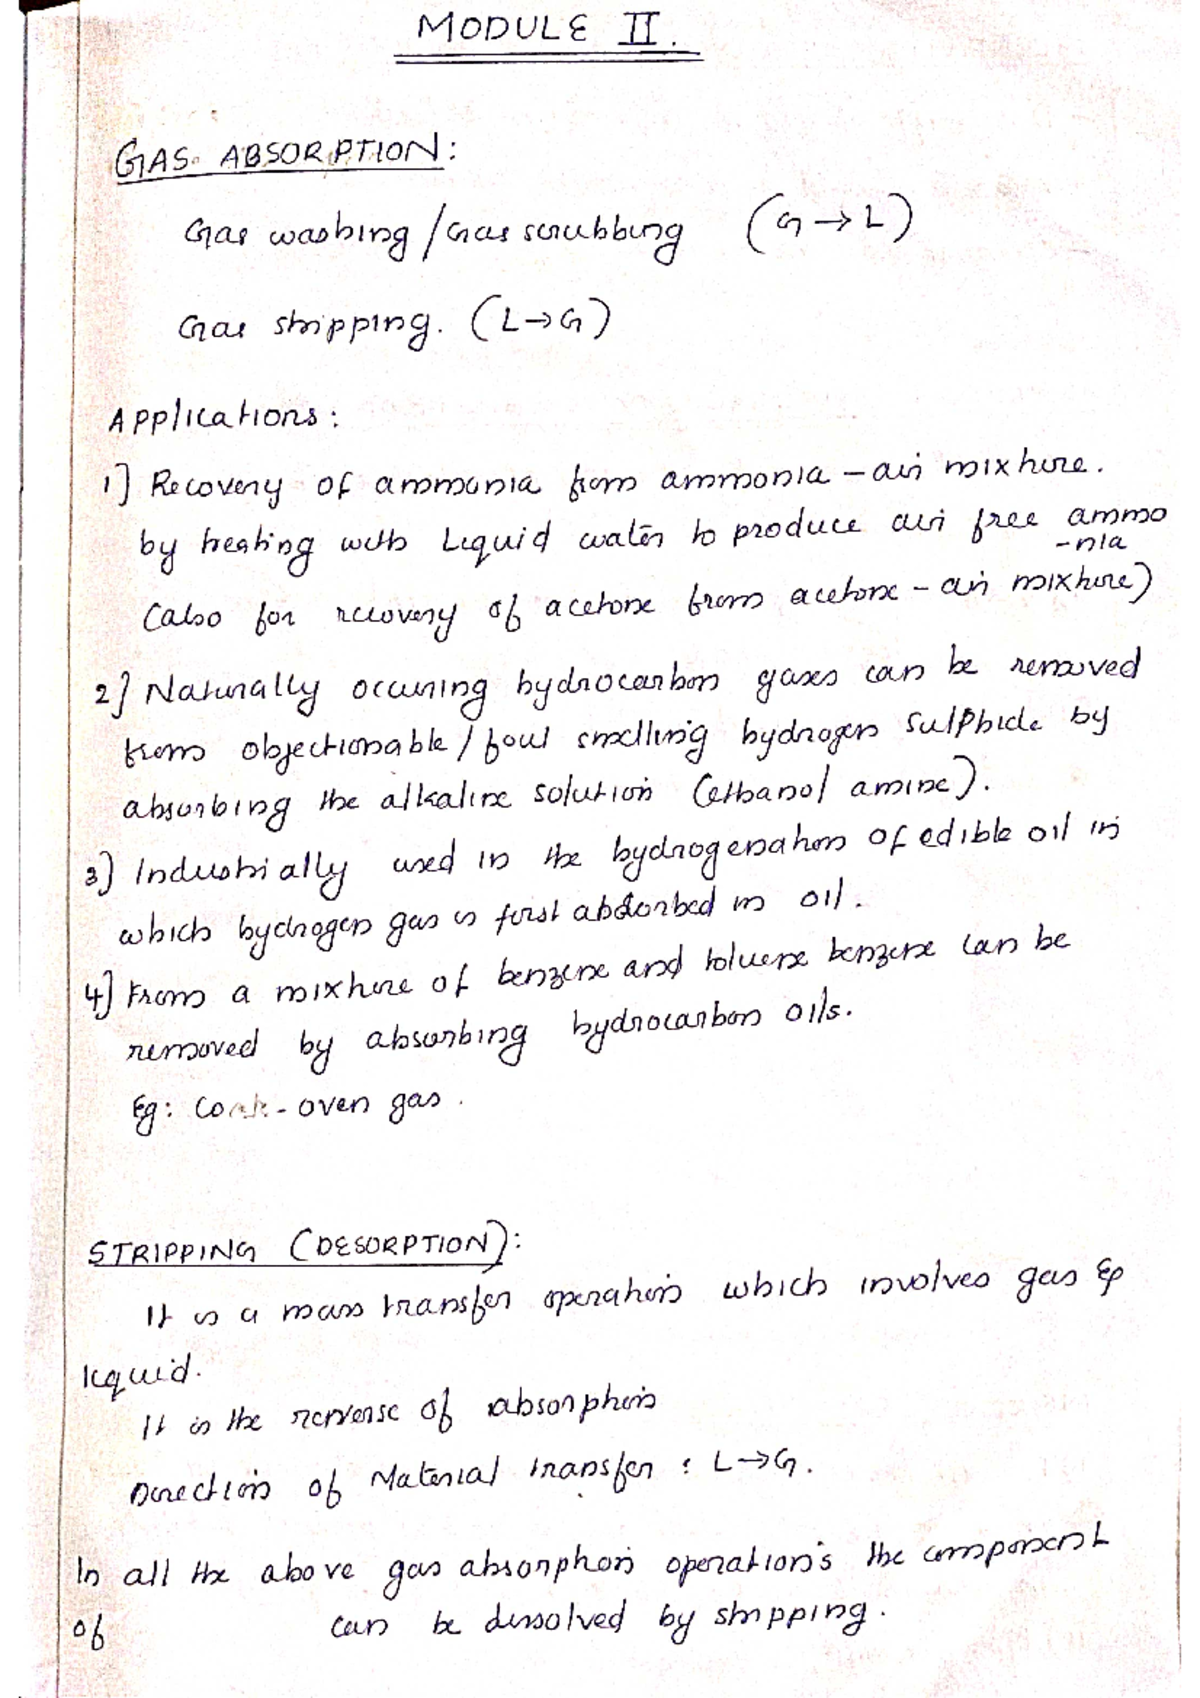 MODULE II.
GAS ABSORPTION:
Gas washing / Gas scrubbing (G → L)
Gas stripping. (L → G)
Applications:
1] Recovery of ammonia from ammonia – air mixture.
by treating with Liquid water to produce air free ammo
-nia
(also for recovery of acetone from acetone – air mixture)
2] Naturally occuring hydrocarbon gases can be removed
from objectionable / foul smelling hydrogen sulphide by
absorbing the alkaline solution (ethanol amine).
3] Industrially used in the hydrogenation of edible oil in
which hydrogen gas is first absorbed in oil.
4] From a mixture of benzene and toluene benzene can be
removed by absorbing hydrocarbon oils.
Eg: Coak-oven gas.
STRIPPING (DESORPTION):
It is a mass transfer operation which involves gas &
liquid.
It is the reverse of absorption
Direction of Material transfer : L → G.
In all the above gas absorption operation's the component
of can be dissolved by stripping.